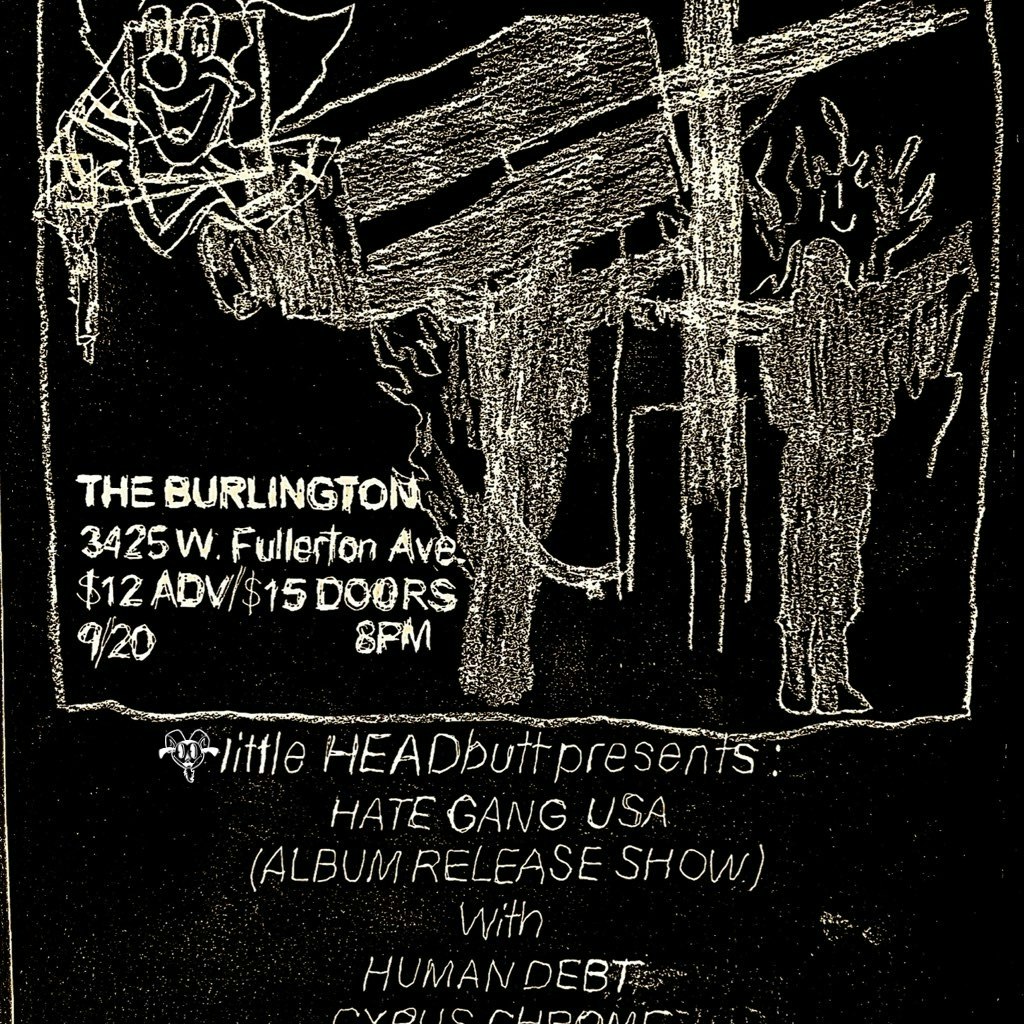 THE BURLINGTON
3425 W. Fullerton Ave.
$12 ADV/$15 DOORS
9/20 8PM
little HEADbutt presents:
HATE GANG USA
(ALBUM RELEASE SHOW)
With
HUMAN DEBT
CYRUS CHROME